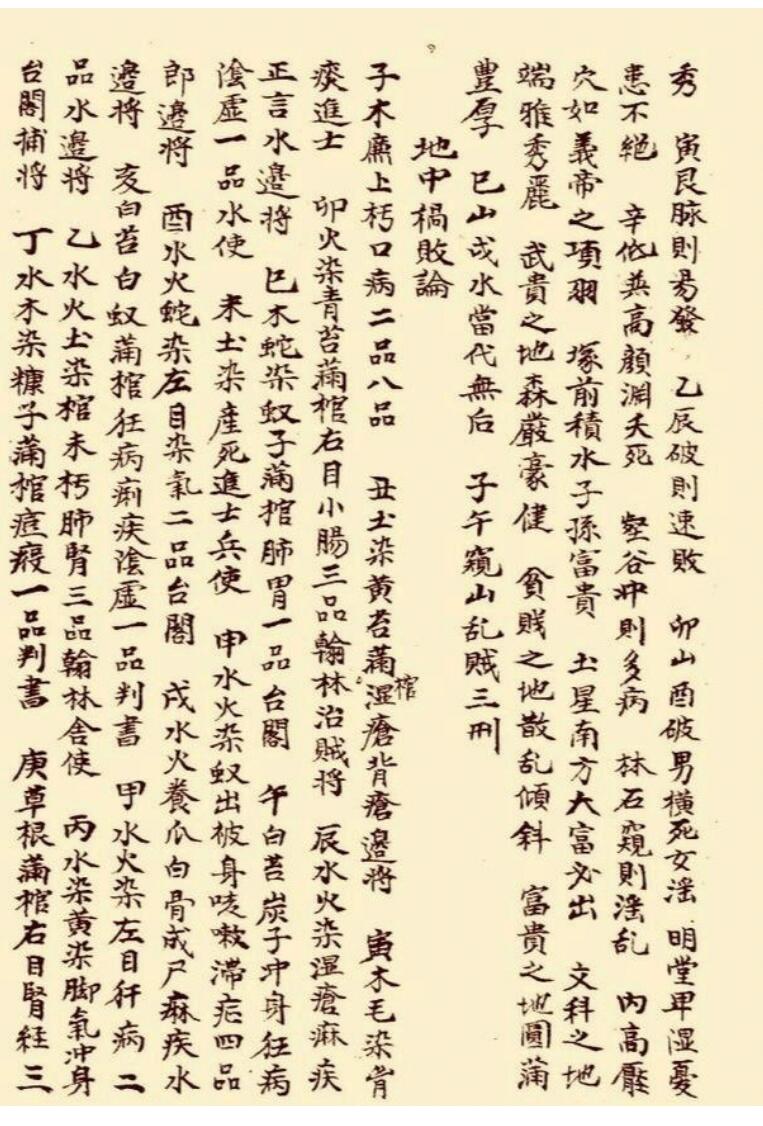 秀　寅艮脉則昜發　乙辰破則速敗　卯山酉破男橫死女淫　明堂卑湿憂
患不絶　辛他兼高顔淵夭死　壑谷冲則多病　林石窺則淫乱　內高壓
穴如義帝之項羽　塚前積水子孫富貴　土星南方大富必出　文科之地
端雅秀麗　武貴之地森嚴豪健　貧賤之地散乱傾斜　富貴之地圓滿
豊厚　巳山戌水當代無后　子午窺山乱賊三刑
地中禍敗論
子木廉上朽口病二品八品　丑土染黃苔滿棺湿瘡背瘡邊將　寅木毛染骨
痰進士　卯火染青苔滿棺右目小腸三品翰林治賊將　辰水火染湿瘡痳疾
正言水邊將　巳木蛇染蚁子滿棺肺胃一品台閣　午白苔炭子冲身狂病
陰虛一品水使　未土染産死進士兵使　申水火染蚁出彼身咳嗽滯疟四品
郎邊將　酉水火蛇染左目染氣二品台閣　戌水火養爪白骨成尸痳疾水
邊將　亥白苔白蚁滿棺狂病痢疾陰虛一品判書　甲水火染左目肝病二
品水邊將　乙水火土染棺未朽肺腎三品翰林舍使　丙水染黃染脚氣冲身
台閣捕將　丁水木染糠子滿棺痘瘢一品判書　庚草根滿棺右目腎経三